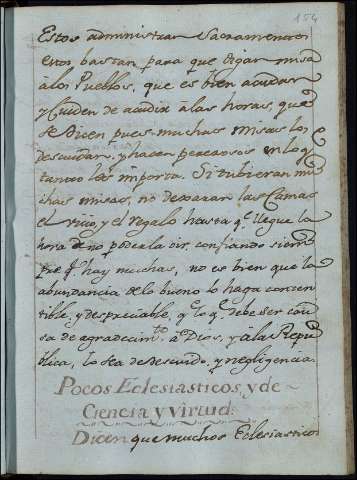 154
Estos administran Sacramentos
estos bastan para que digan misa
a los Pueblos, que es bien acudan
y Cuiden de acudir à las horas, que
se Dicen pues muchas misas los
descuidan, y hacen perezosos en lo q.
tanto les importa. Si tubieran mu
chas misas, no dexaran las Camas
el vicio, y el regalo hasta q.e llegue la
hora de no poderla oir, confiando siem
pre q.e hay muchas, no es bien que la
abundancia de lo bueno lo haga contem
tible, y despreciable, y lo q.e debe ser cau
sa de agradecim.to à Dios, y à la Repu
blica, lo sea de descuido, y negligencia.
Pocos Eclesiasticos, y de
Ciencia y Virtud.
Dicen que muchos Eclesiasticos